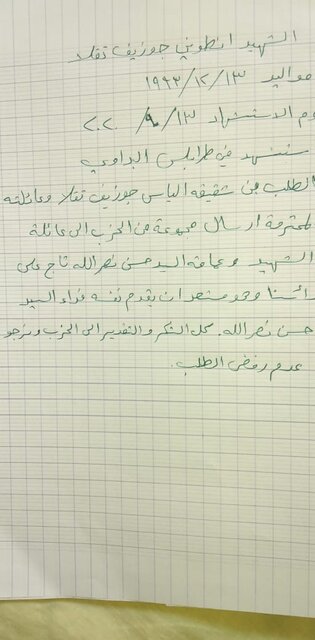 الشهيد انطوني جوزيف تقلا
مواليد ١٩٩٣/١٢/١٣
وم الاستشهاد ١٣/٩/٢٠٢٠
ستشهد في طرابلس البداوي
الطلب من شقيقه الياس جوزيف تقلا وعائلته
لمحترمة ارسال مجموعة من الحزب الى عائلة
الشهيد وعمامة السيد حسن نصرالله تاج على
رأسنا وهو مستعد ان يقدم نفسه فداء السيد
حسن نصرالله. كل الشكر والتقدير الى الحزب ونرجو
عدم رفض الطلب.